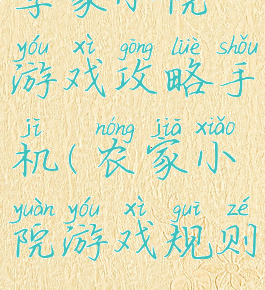 家小院
yóu xì gōng lüè shǒu
游戏攻略手
jī nóng jiā xiǎo
机(农家小
yuàn yóu xì guī zé
院游戏规则